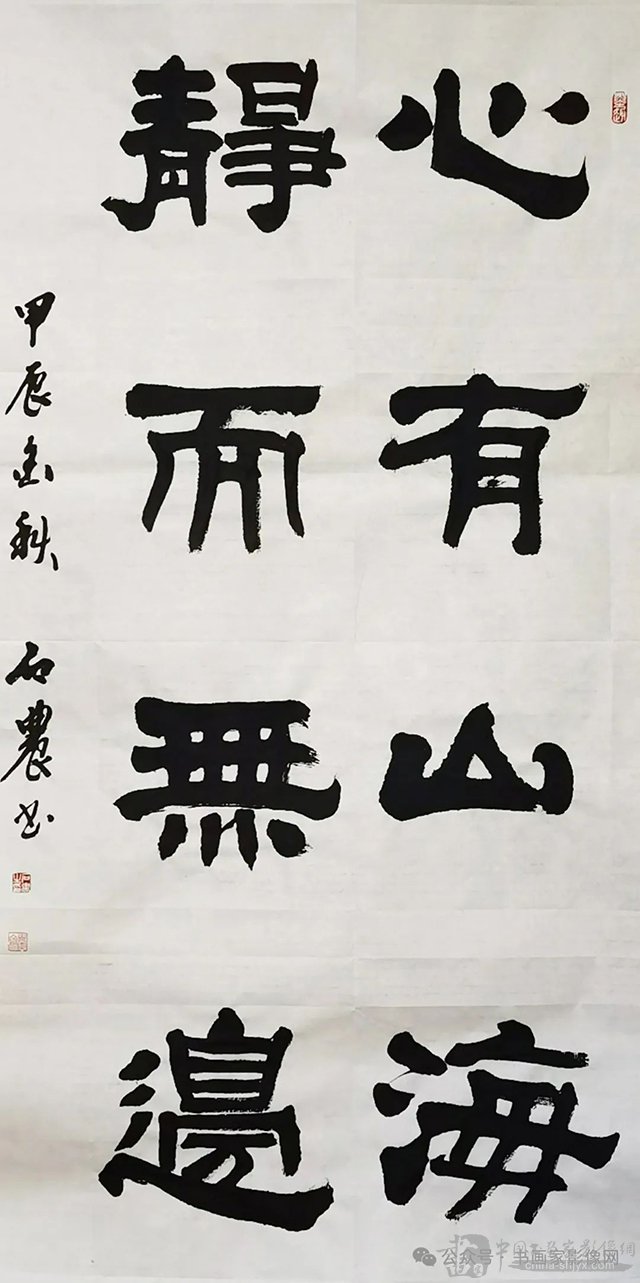 心有山海
靜而無邊
甲辰金秋 石農书
公众号·书画家影像网
china-shjyx.com